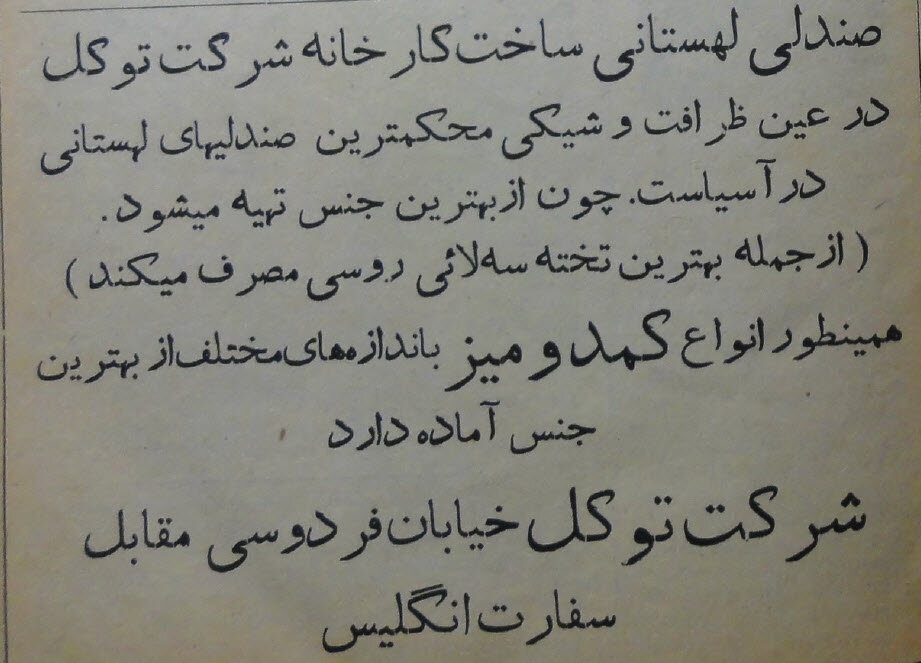 صندلی لهستانی ساخت کارخانه شرکت توکل
در عین ظرافت و شیکی محکمترین صندلیهای لهستانی
در آسیاست. چون از بهترین جنس تهیه میشود.
( از جمله بهترین تخته سه‌لائی روسی مصرف میکند )
همینطور انواع کمد و میز باندازه‌های مختلف از بهترین
جنس آماده دارد
شرکت توکل خیابان فردوسی مقابل
سفارت انگلیس